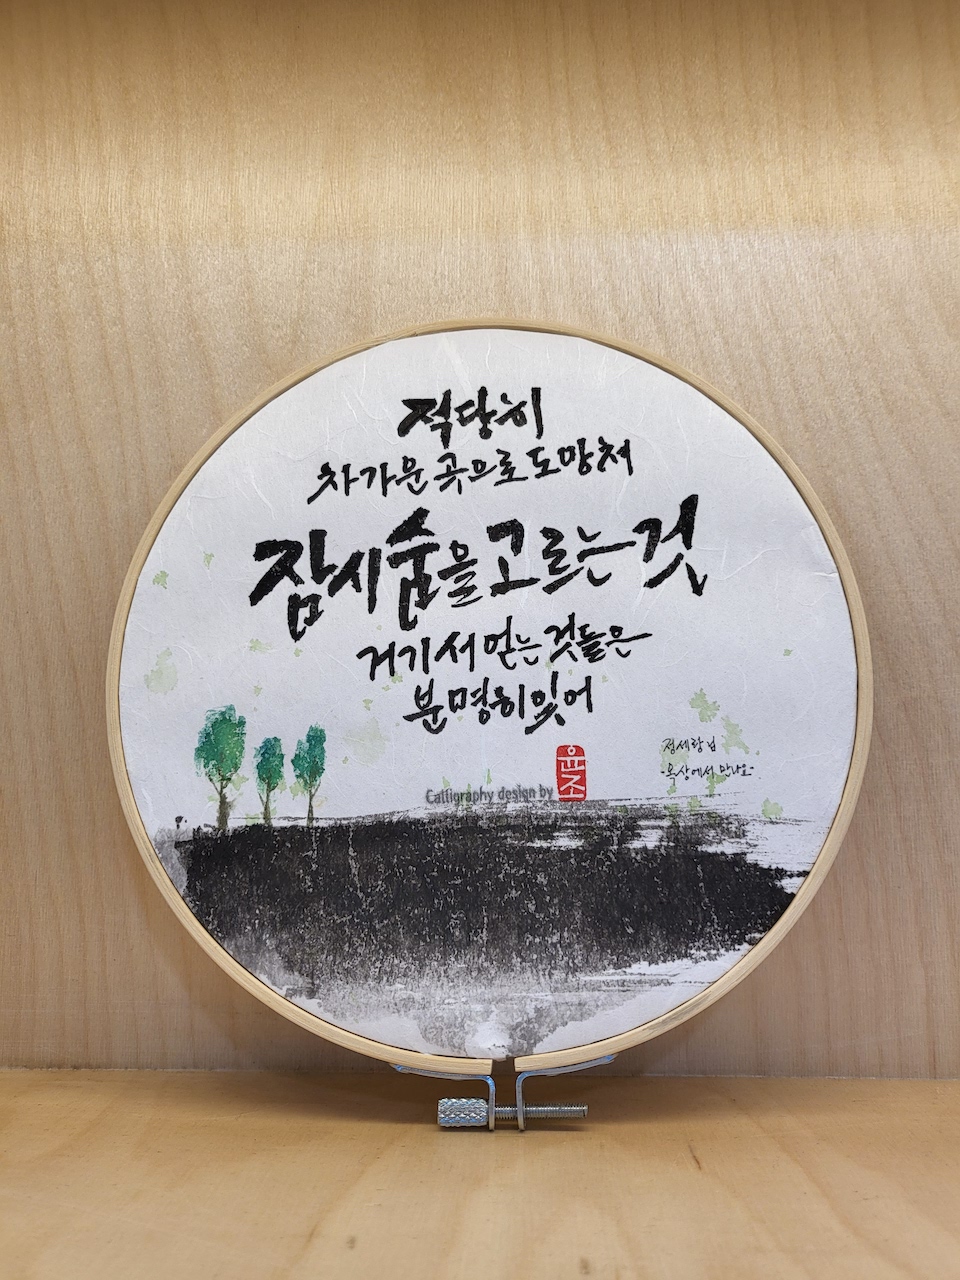 적당히
차가운 곳으로 도망쳐
잠시 숨을 고르는 것
거기서 얻는 것들은
분명히 있어
정세랑님
-옥상에서 만나요-
Calligraphy design by
윤조